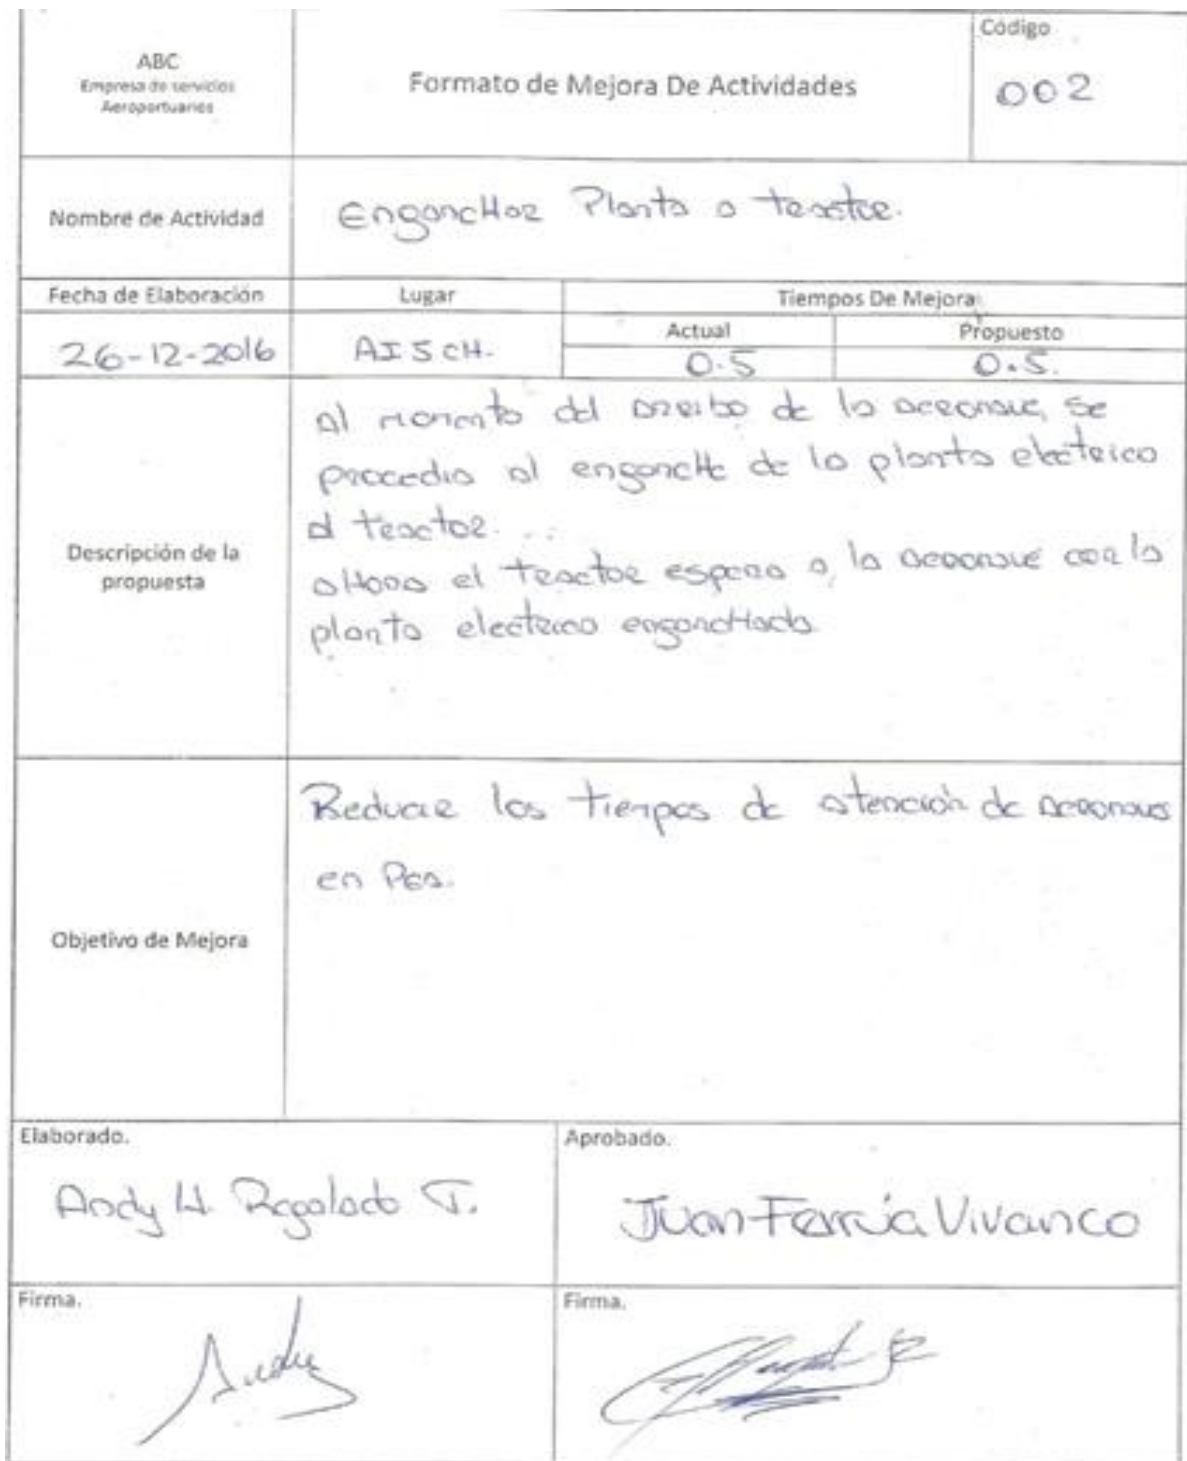 ABC
Empresa de servicios
Aeroportuarios
Formato de Mejora De Actividades
Código
002
Nombre de Actividad
EngancHar Planta a tractor.
Fecha de Elaboración
Lugar
Tiempos De Mejora
Actual
Propuesto
26-12-2016
AISCH.
0.5
0.5.
Descripción de la
propuesta
Al momento del arribo de la aeronave, se
procedia al enganche de la planta electrica
al tractor...
aHora el tractor espera a la aeronave con la
planta electrica engancHada
Objetivo de Mejora
Reducir los tiempos de atención de aeronaves
en Pea.
Elaborado.
Andy H. Regalado T.
Aprobado.
Juan Farcía Vivanco
Firma.
Andy
Firma.